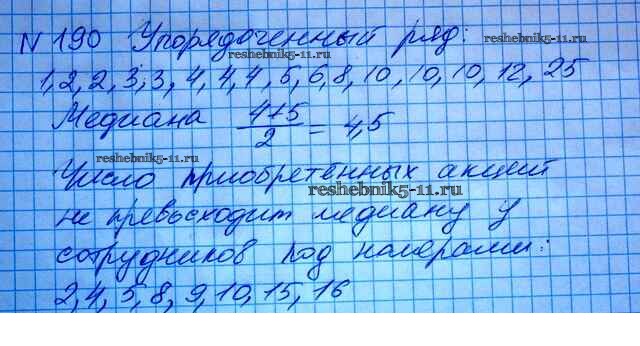 N 190 Упорядоченный ряд:
reshebnik5-11.ru
reshebnik5-11.ru
1, 2, 2, 3, 3, 4, 4, 4, 5, 6, 8, 10, 10, 10, 12, 25
Медиана 4+5/2 = 4,5
reshebnik5-11.ru
Число приобретённых акций
reshebnik5-11.ru
не превосходит медиану у
сотрудников под номерами:
2, 4, 5, 8, 9, 10, 15, 16